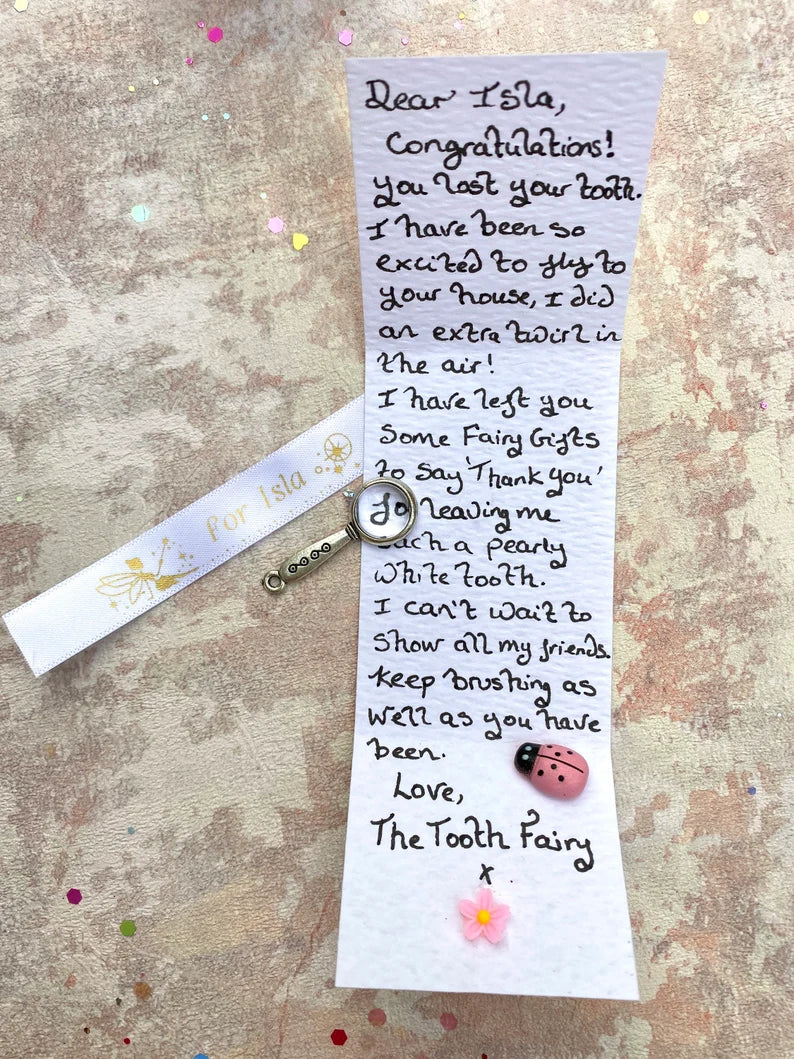 Dear Isla,
Congratulations!
You lost your tooth.
I have been so
excited to fly to
your house, I did
an extra twirl in
the air!
I have left you
Some Fairy Gifts
to say 'Thank you'
fo leaving me
such a pearly
white tooth.
I can't wait to
show all my friends.
Keep brushing as
well as you have
been.
Love,
The Tooth Fairy
x
For Isla